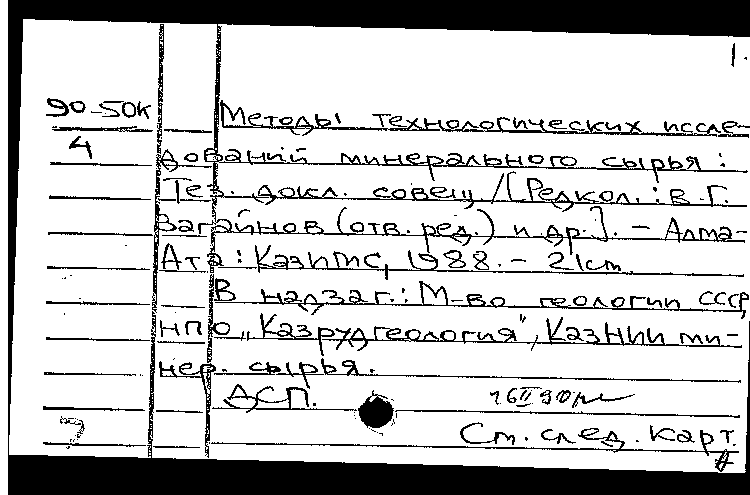 1.
90-50к Методы технологических иссле-
4 дований минерального сырья :
Тез. докл. совещ /[Редкол.: В.Г.
Загайнов (отв. ред.) и др.]. – Алма-
Ата : КазИМС, 1988. – 21 см.
В надзаг.: М-во геологии СССР,
НПО „Казрудгеология", КазНИИ ми-
нер. сырья.
ДСП. 16 II 90
См. след. карт.